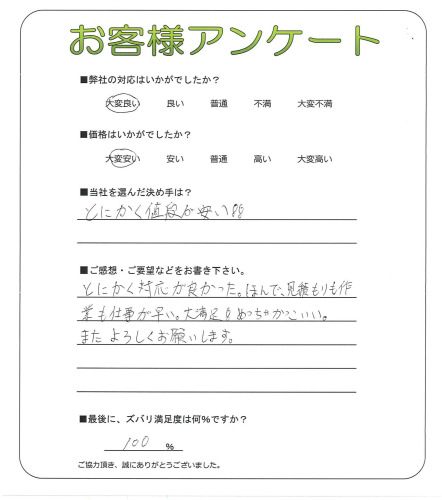 お客様アンケート
■弊社の対応はいかがでしたか？
大変良い 良い 普通 不満 大変不満
■価格はいかがでしたか？
大変安い 安い 普通 高い 大変高い
■当社を選んだ決め手は？
とにかく値段が安い!!
■ご感想・ご要望などをお書き下さい。
とにかく対応が良かった。ほんで、見積もりも作
業も仕事が早い。大満足 めっちゃかっこいい。
また よろしくお願いします。
■最後に、ズバリ満足度は何%ですか？
100 %
ご協力頂き、誠にありがとうございました。